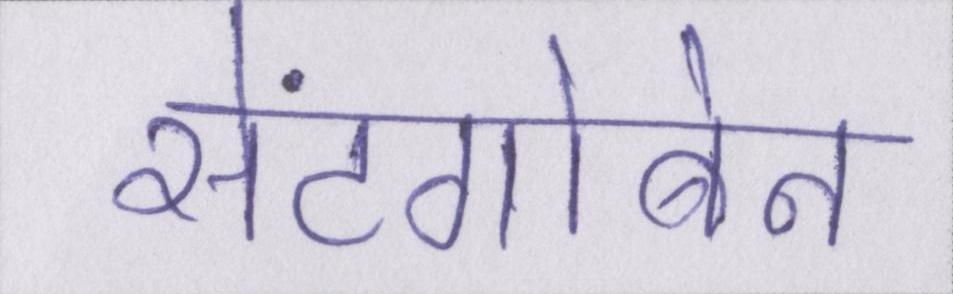 सेंटगोबेन